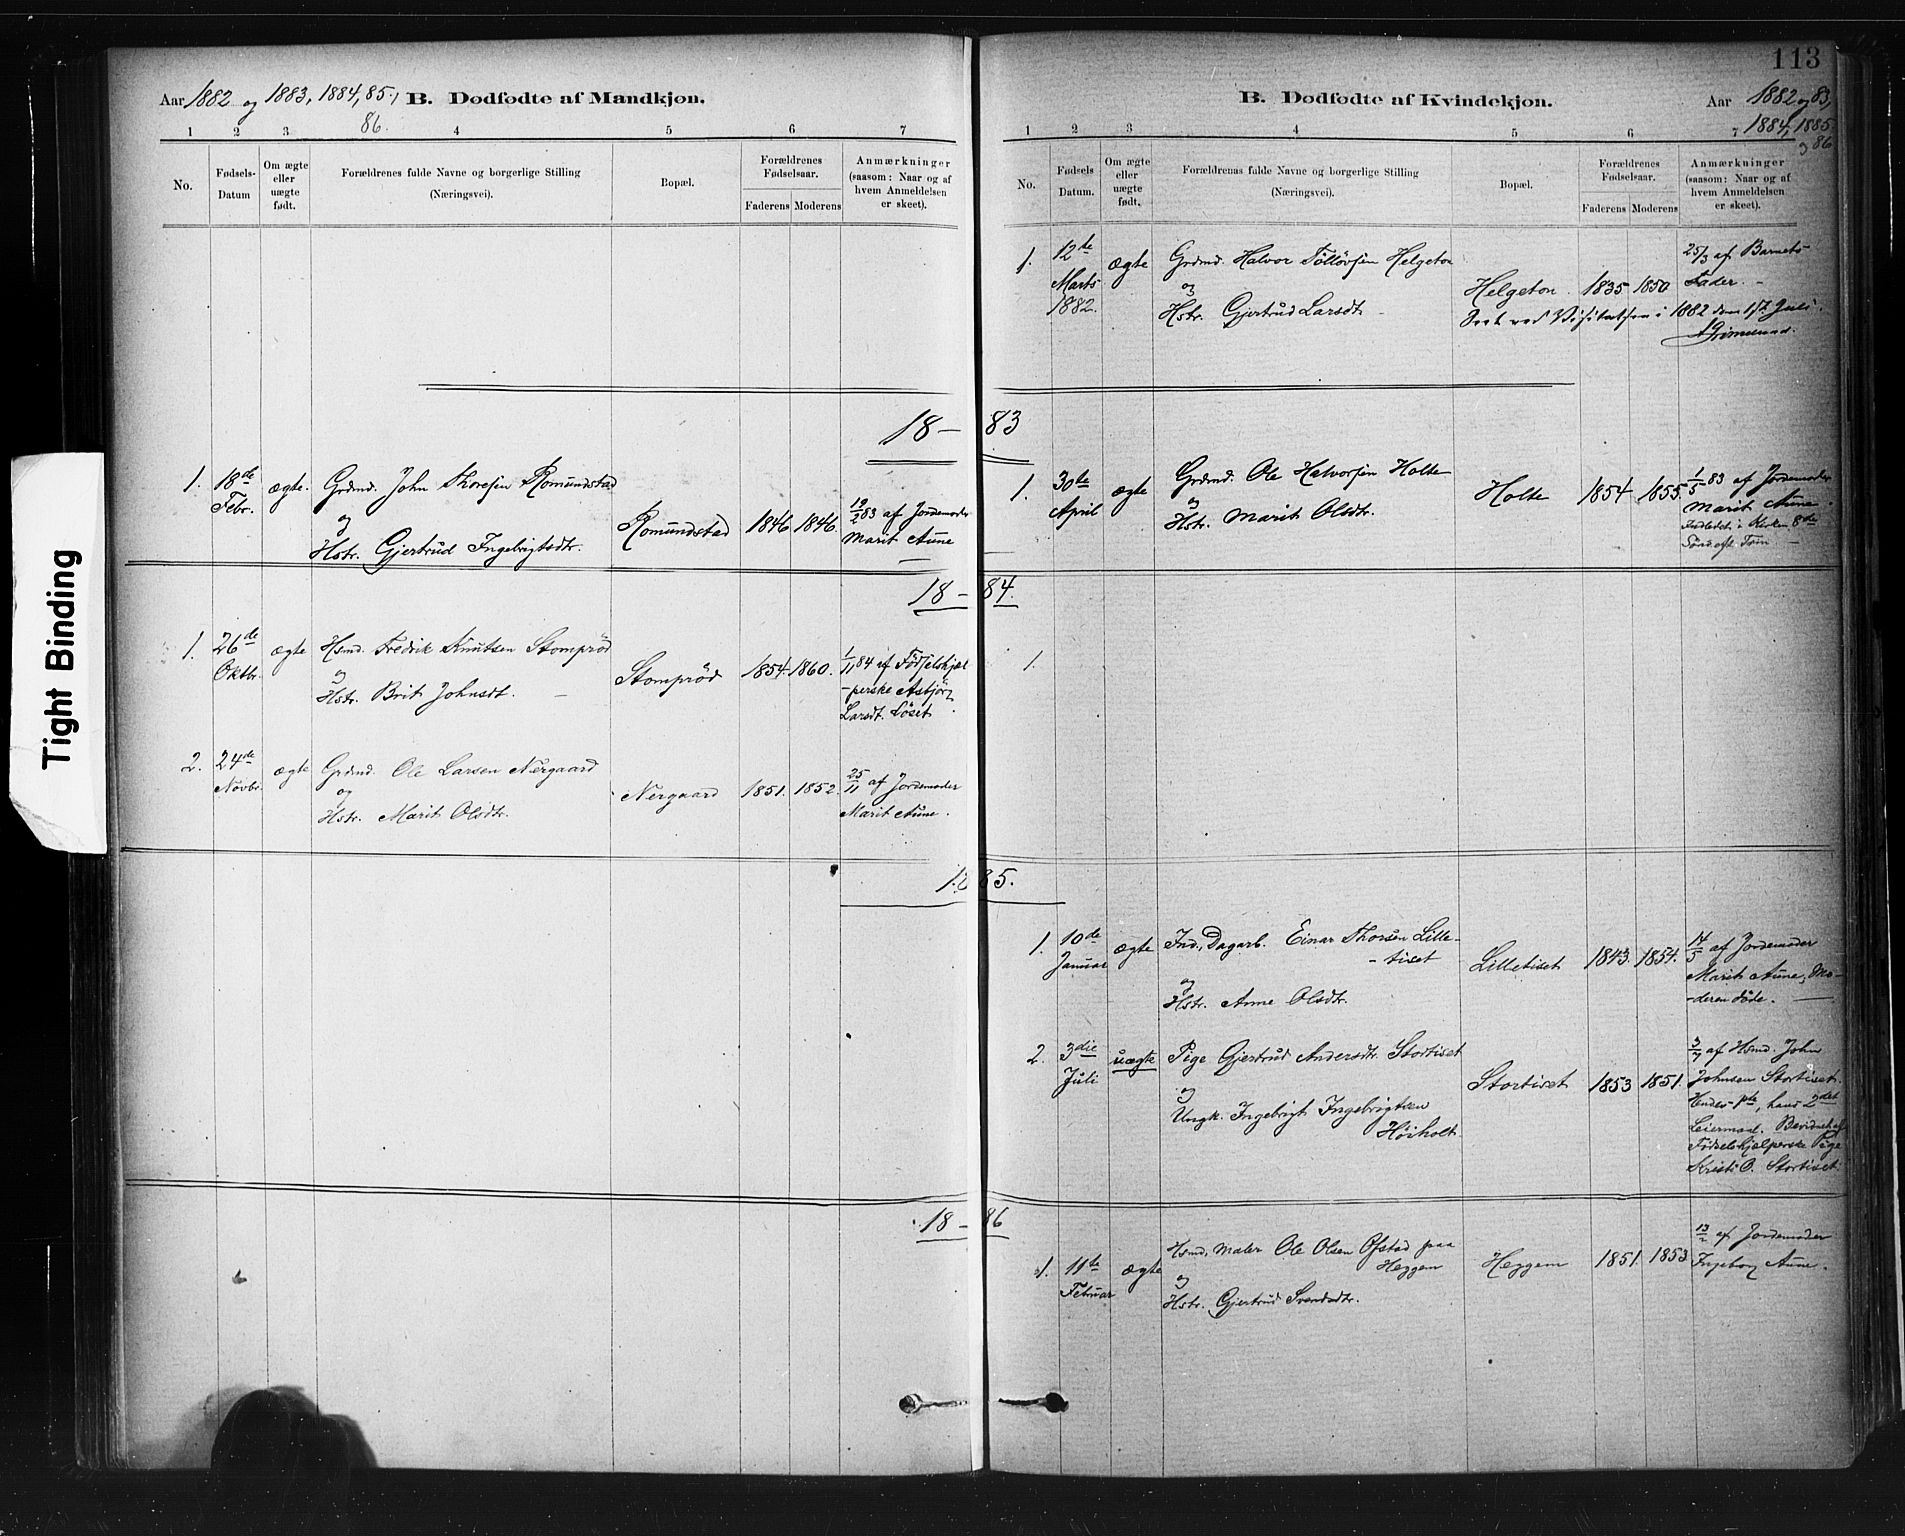 113
Aar 1882 og 1883, 1884, 85,
86.
B. Dødfødte af Mandkjøn.
1 2 3 4 5 6 7
No.
Fødsels-
Datum
Om ægte
eller
uægte
født.
Forældrenes fulde Navne og borgerlige Stilling
(Næringsvei).
Bopæl.
Forældrenes
Fødselsaar.
Faderens Moderens
Anmærkninger
(saasom: Naar og af
hvem Anmeldelsen
er skeet).
18 – 83
1. 18de Febr. ægte. Grdmd. John Thoresen Romundstad
og
Hstr. Gjertrud Ingebrigtsdtr.
Romundstad 1846 1846.
19/2 83 af Jordemoder
Marit Aune
18 – 84.
1. 26de Oktbr. ægte Hsmd. Fredrik Knutsen Stomprød
og
Hstr. Brit Johnsdt. –
Stomprød 1854. 1860.
1/11 84 af Fødselshjæl
-perske Asbjørg
Larsdt. Løset.
2. 24de Novbr. ægte Grdmd. Ole Larsen Nergaard
og
Hstr. Marit Olsdtr.
Nergaard 1851. 1852.
25/11 af Jordemoder
Marit Aune.
1885.
18 – 86
B. Dødfødte af Kvindekjøn.
Aar 1882 og 83,
1884, 1885
og 86
1 2 3 4 5 6 7
No.
Fødsels
Datum.
Om ægte
eller
uægte
født.
Forældrenas fulde Navne og borgerlige Stilling
(Næringsvei).
Bopæl.
Forældrenes
Fødselsaar.
Faderens Moderens
Anmærkninger
(saasom: Naar og af
hvem Anmeldelsen
er skeet).
1. 12te Marts 1882. ægte Grdmd. Halvor Tølløvsen Helgeton
og
Hstr. Gjertrud Larsdt. –
Helgeton 1835 1850
25/3 af Barnets
Fader. –
Seet ved Visitatsen i 1882 den 1st Juli.
Grimelund.
1. 30te April ægte Grdmd. Ole Halvorsen Holte
og
Hstr. Marit Olsdtr.
Holte 1854. 1855.
1/5 83 af Jordemoder
Marit Aune.
Indledet i Kirken 8de
Sønd. eft. Trin –
1.
1. 10de Januar ægte Ind., Dagarb. Einar Thorsen Lille-
-tiset
og
Hstr. Anne Olsdtr.
Lilletiset 1843. 1854.
14/5 af Jordemoder
Marit Aune, Mo-
-deren døde. –
2. 3die Juli uægte Pige Gjertrud Andersdtr. Stortiset
og
Ungk. Ingebrigt Ingebrigtsen
Høiholt.
Stortiset 1853 1851.
3/7 af Hsmd. John
Johnsen Stortiset.
Hendes 1ste, hans 2det
Leiermaal. Bevidnet af
Fødselshjælperske Pige
Kristi O. Stortiset.
1. 11te Februar ægte Hsmd, Maler Ole Olsen Ofstad paa
Heggem
og
Hstr. Gjertrud Svendsdtr.
Heggem 1851. 1853.
13/2 af Jordemoder
Ingeborg Aune.
Tight Binding